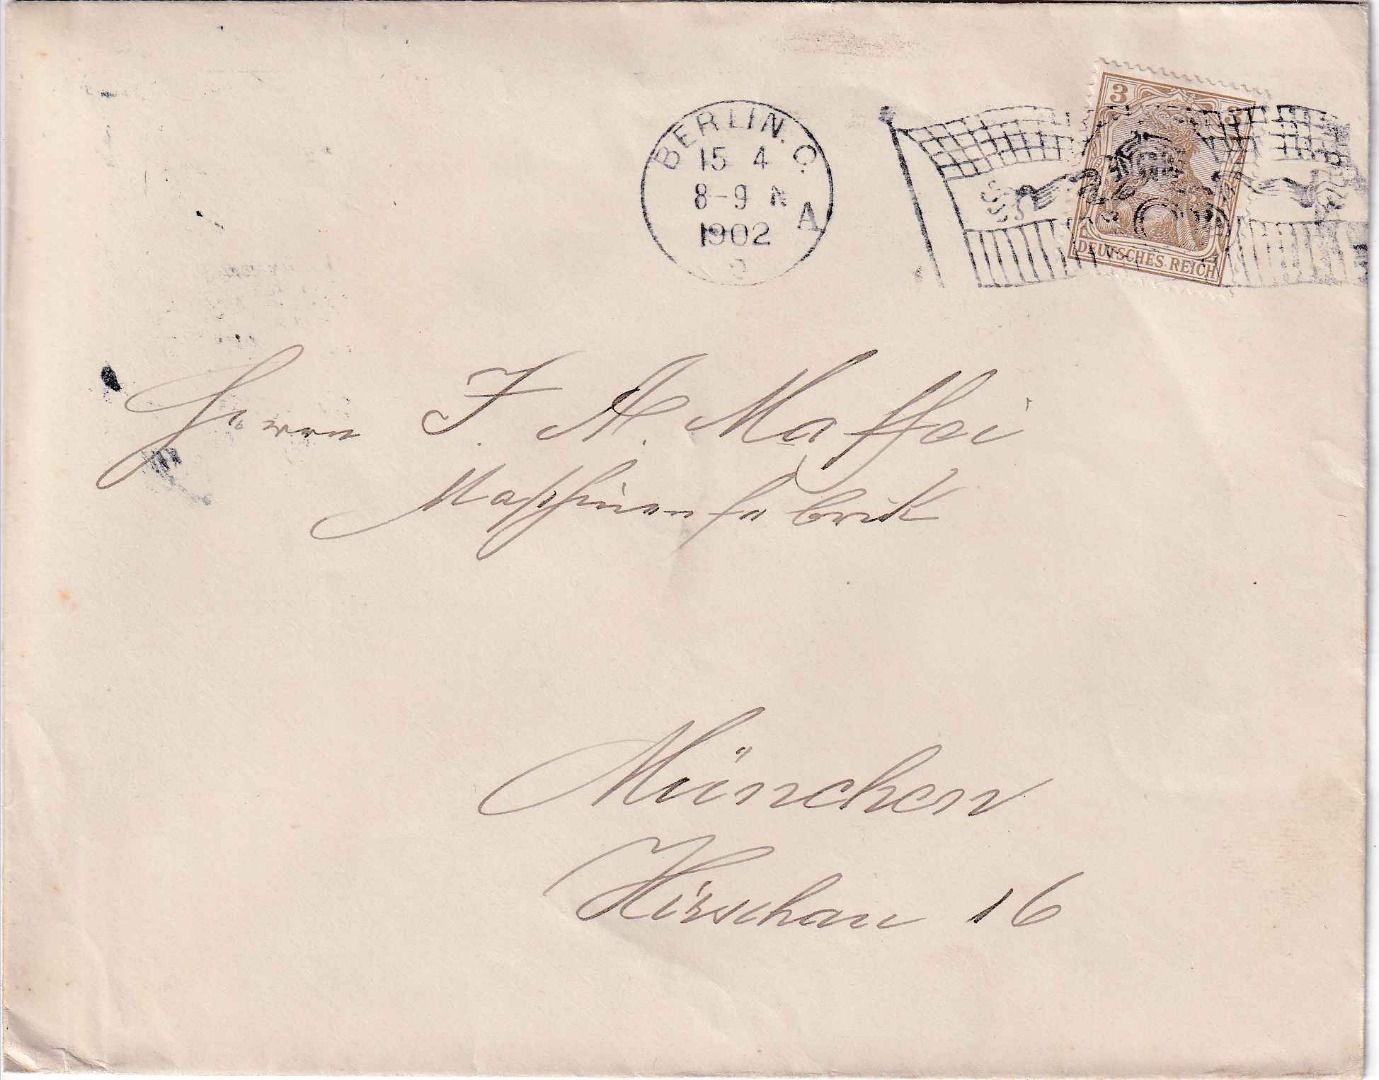 BERLIN. C.
15 4
8-9 N
1902
A
3 3
DEUTSCHES REICH
Herrn J. A. Maffei
Maschinenfabrik
München
Hirschau 16